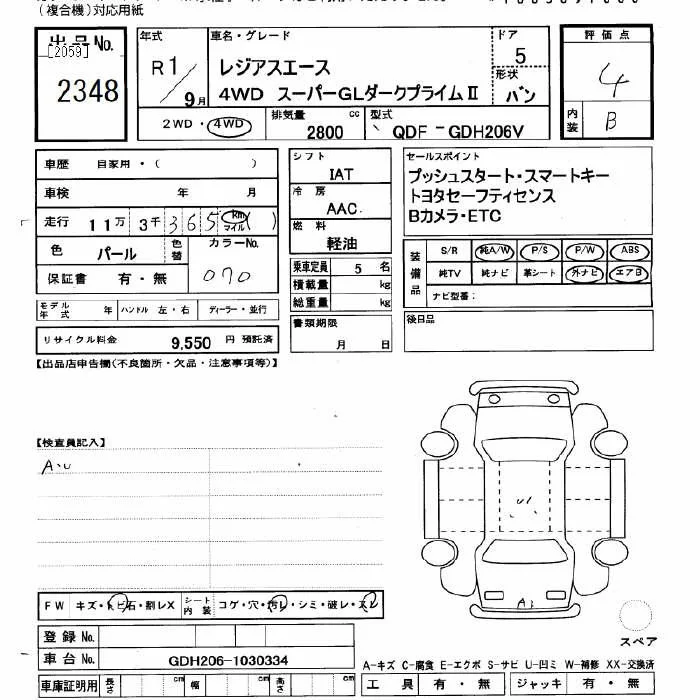 (複合機)対応用紙
出品No.
[2059]
2348
年式
R1/9月
車名・グレード
レジアスエース
4WD スーパーGLダークプライムⅡ
ドア
5
形状
バン
評価点
4
内装
B
2WD・4WD
排気量
2800 cc
型式
QDF-GDH206V
車歴 自家用・( )
車検 年 月
走行 11万3千365 km マイル ( )
色 パール 色替
カラーNo. 070
保証書 有・無
モデル年式 年 ハンドル 左・右 ディーラー・並行
リサイクル料金 9,550 円 預託済
シフト
IAT
冷房
AAC
燃料
軽油
乗車定員 5 名
積載量 kg
総重量 kg
書類期限
月 日
セールスポイント
プッシュスタート・スマートキー
トヨタセーフティセンス
Bカメラ・ETC
装備品
S/R 純A/W P/S P/W ABS
純TV 純ナビ 革シート 外ナビ エアB
ナビ型番:
後日品
【出品店申告欄(不良箇所・欠品・注意事項等)】
【検査員記入】
A・U
U1
A3
FW キズ・トビ石・割レX シート内装 コゲ・穴・汚レ・シミ・破レ・スレ
登録No.
車台No. GDH206-1030334
スペア
A-キズ C-腐食 E-エクボ S-サビ U-凹ミ W-補修 XX-交換済
車庫証明用 長さ cm 幅 cm 高さ cm
工具 有・無 ジャッキ 有・無